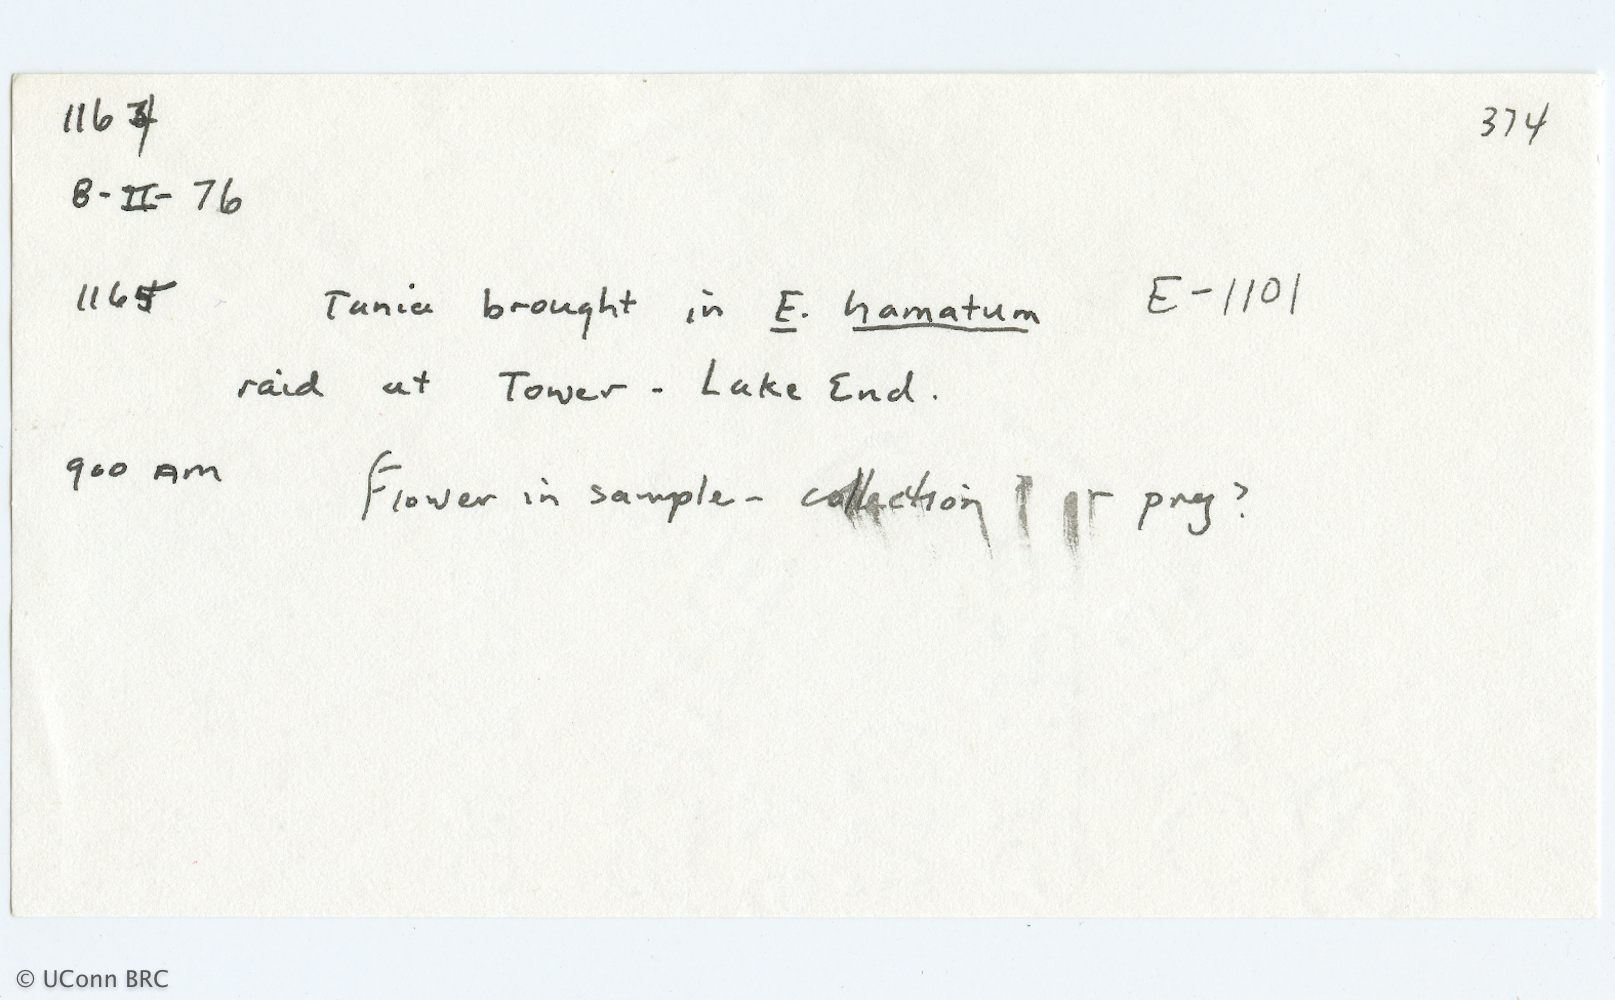 1164 374
8-II-76
1165 Tania brought in E. hamatum E-1101
raid at Tower - Lake End.
900 AM Flower in sample - collection or prey?
© UConn BRC